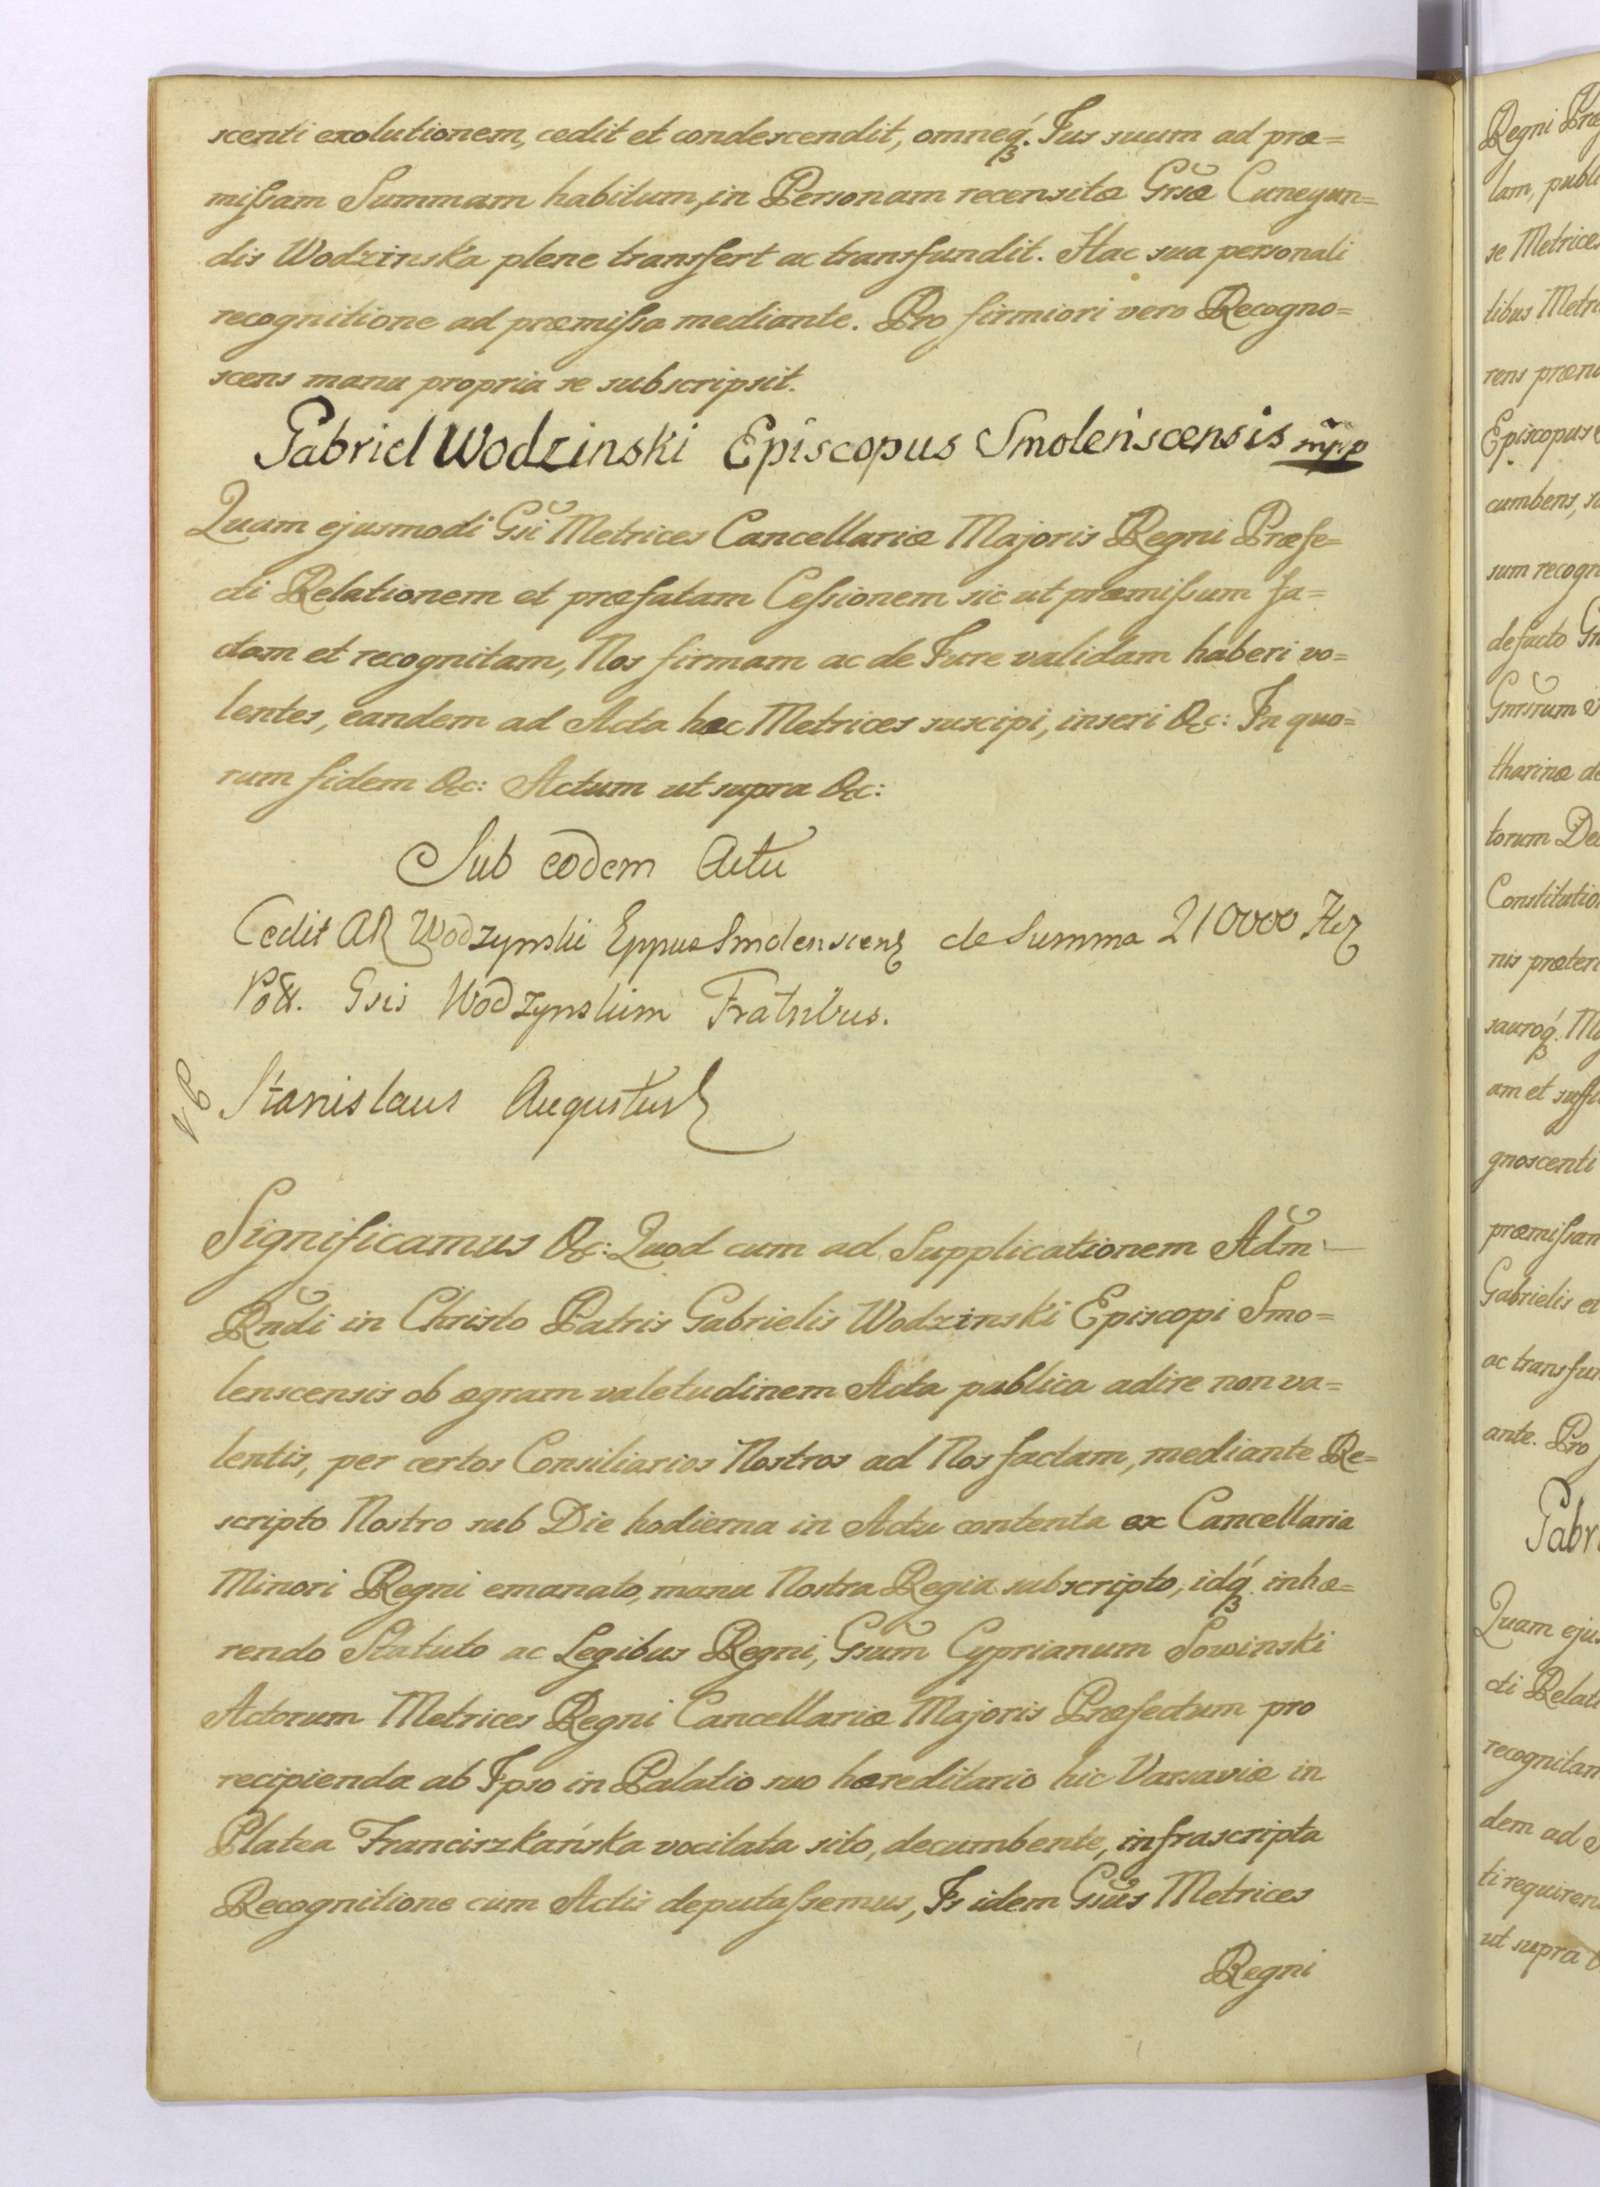 scenti exolutionem, cedit et condescendit, omneq́ꝫ. Jus suum ad præ=
missam Summam habitum, in Personam recensitæ Gr̃sæ Cunegun=
dis Wodzinska plene transfert ac transfundit. Hac sua personali
recognitione ad præmissa mediante. Pro firmiori vero Recogno=
scens manu propria se subscripsit.
Gabriel Wodzinski Episcopus Smoleńscensis mpp
Quam ejusmodi Gsi Metrices Cancellariæ Majoris Regni Præfe=
cti Relationem et præfatam Cessionem sic ut præmissum fa=
ctam et recognitam, Nos firmam ac de Jure validam haberi vo=
lentes, eandem ad Acta hæc Metrices suscipi, inseri &c: In quo=
rum fidem &c: Actum ut supra &c:
Sub eodem Actu
Cedit AR Wodzynski Eppus Smolenscens de Summa 210000
Gsis Wodzynskim Fratribus.
Stanislaus Augustus
Significamus &c: Quod cum ad Supplicationem Adm
Rndi in Christo Patris Gabrielis Wodzinski Episcopi Smo=
lenscensis ob ægram valetudinem Acta publica adire non va=
lentis, per certos Consiliarios Nostros ad Nos factam, mediante Re=
scripto Nostro sub Die hodierna in Actu contenta ex Cancellaria
Minori Regni emanato, manu Nostra Regia subscripto, idq́ꝫ. inhæ=
rendo Statuto ac Legibus Regni, Gsum Cyprianum Sowinski
Actorum Metrices Regni Cancellariæ Majoris Præfectum pro
recipienda ab Ipso in Palatio suo hæreditario hic Varsaviæ in
Platea Franciszkańska vocitata sito, decumbente, infrascripta
Recognitione cum Actis deputassemus, Is idem Gsus Metrices
Regni